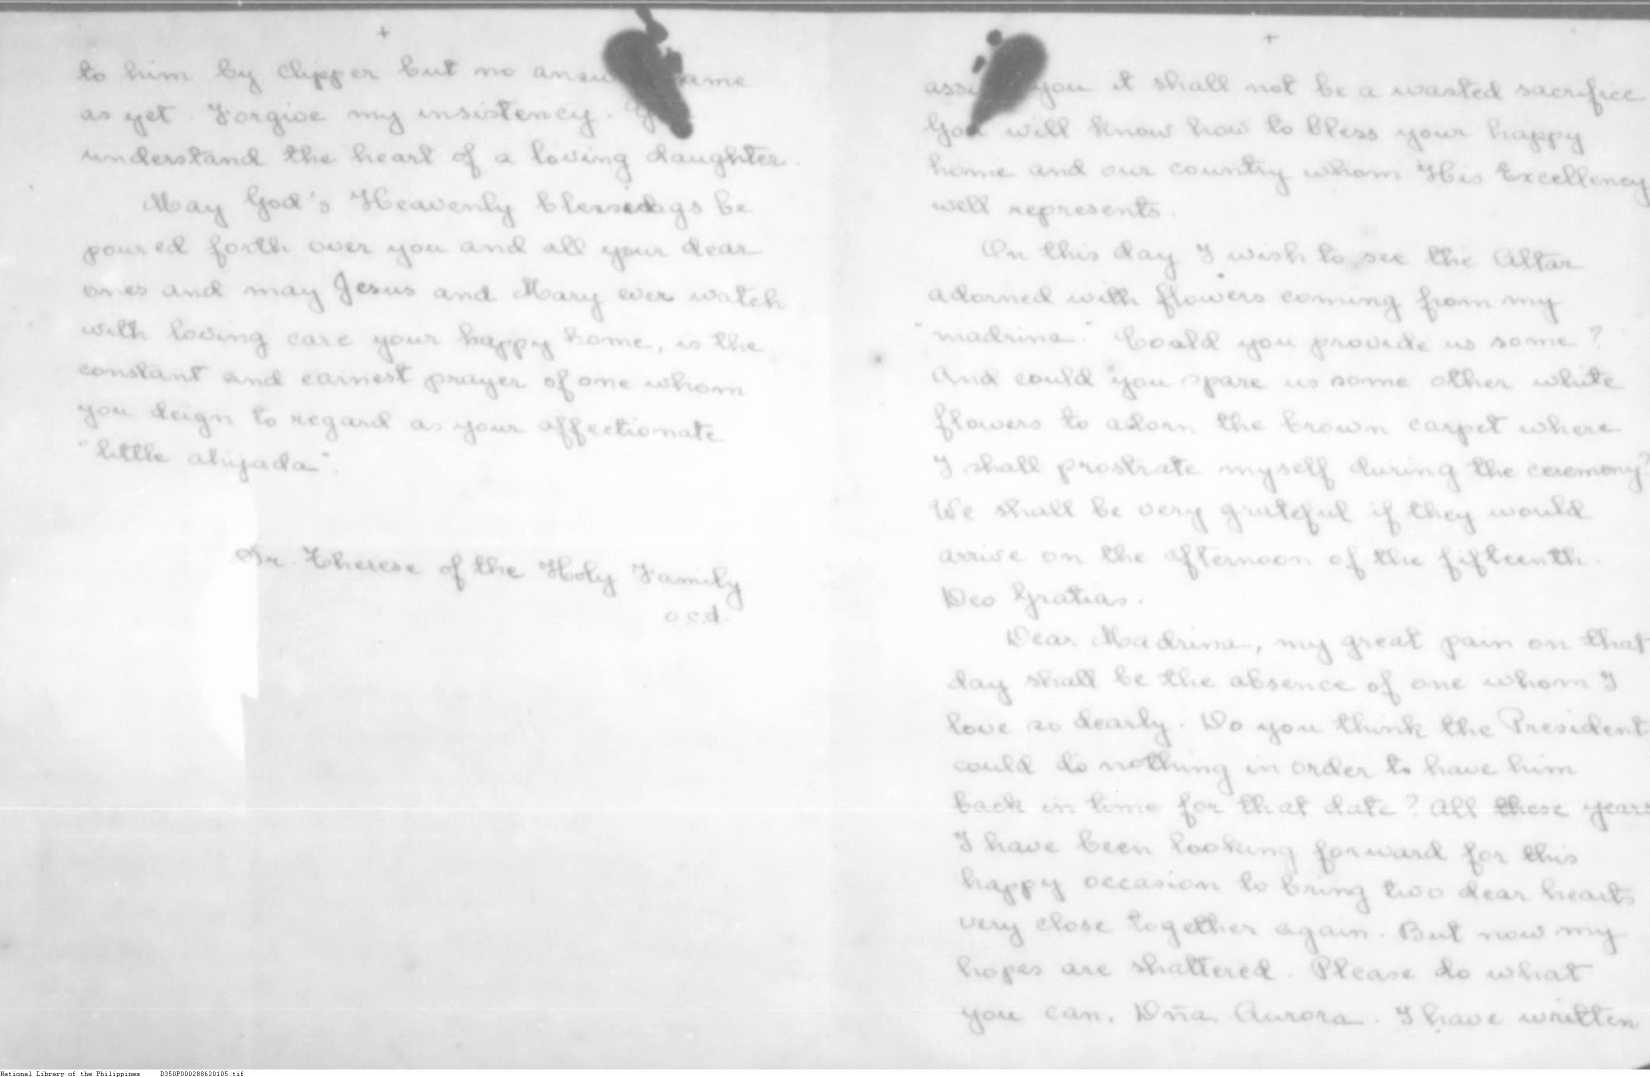 +
to him by Clipper but no came
as yet. Forgive my insistency.
understand the heart of a loving daughter.
May God's Heavenly blessings be
poured forth over you and all your dear
ones and may Jesus and Mary ever watch
with loving care your happy home, is the
constant and earnest prayer of one whom
you deign to regard as your affectionate
"little ahijada".
Sr. Therese of the Holy Family
o.c.d.
+
you it shall not be a wasted sacrifice
God will know how to bless your happy
home and our country whom His Excellency
well represents.
On this day I wish to see the Altar
adorned with flowers coming from my
"madrina." Could you provide us some?
And could you spare us some other white
flowers to adorn the brown carpet where
I shall prostrate myself during the ceremony?
We shall be very grateful if they would
arrive on the afternoon of the fifteenth.
Deo Gratias.
Dear Madrina, my great pain on that
day shall be the absence of one whom I
love so dearly. Do you think the President
could do nothing in order to have him
back in time for that date? All these years
I have been looking forward for this
happy occasion to bring two dear hearts
very close together again. But now my
hopes are shattered. Please do what
you can, Dña. Aurora. I have written
National Library of the Philippines D350P000288620105.tif